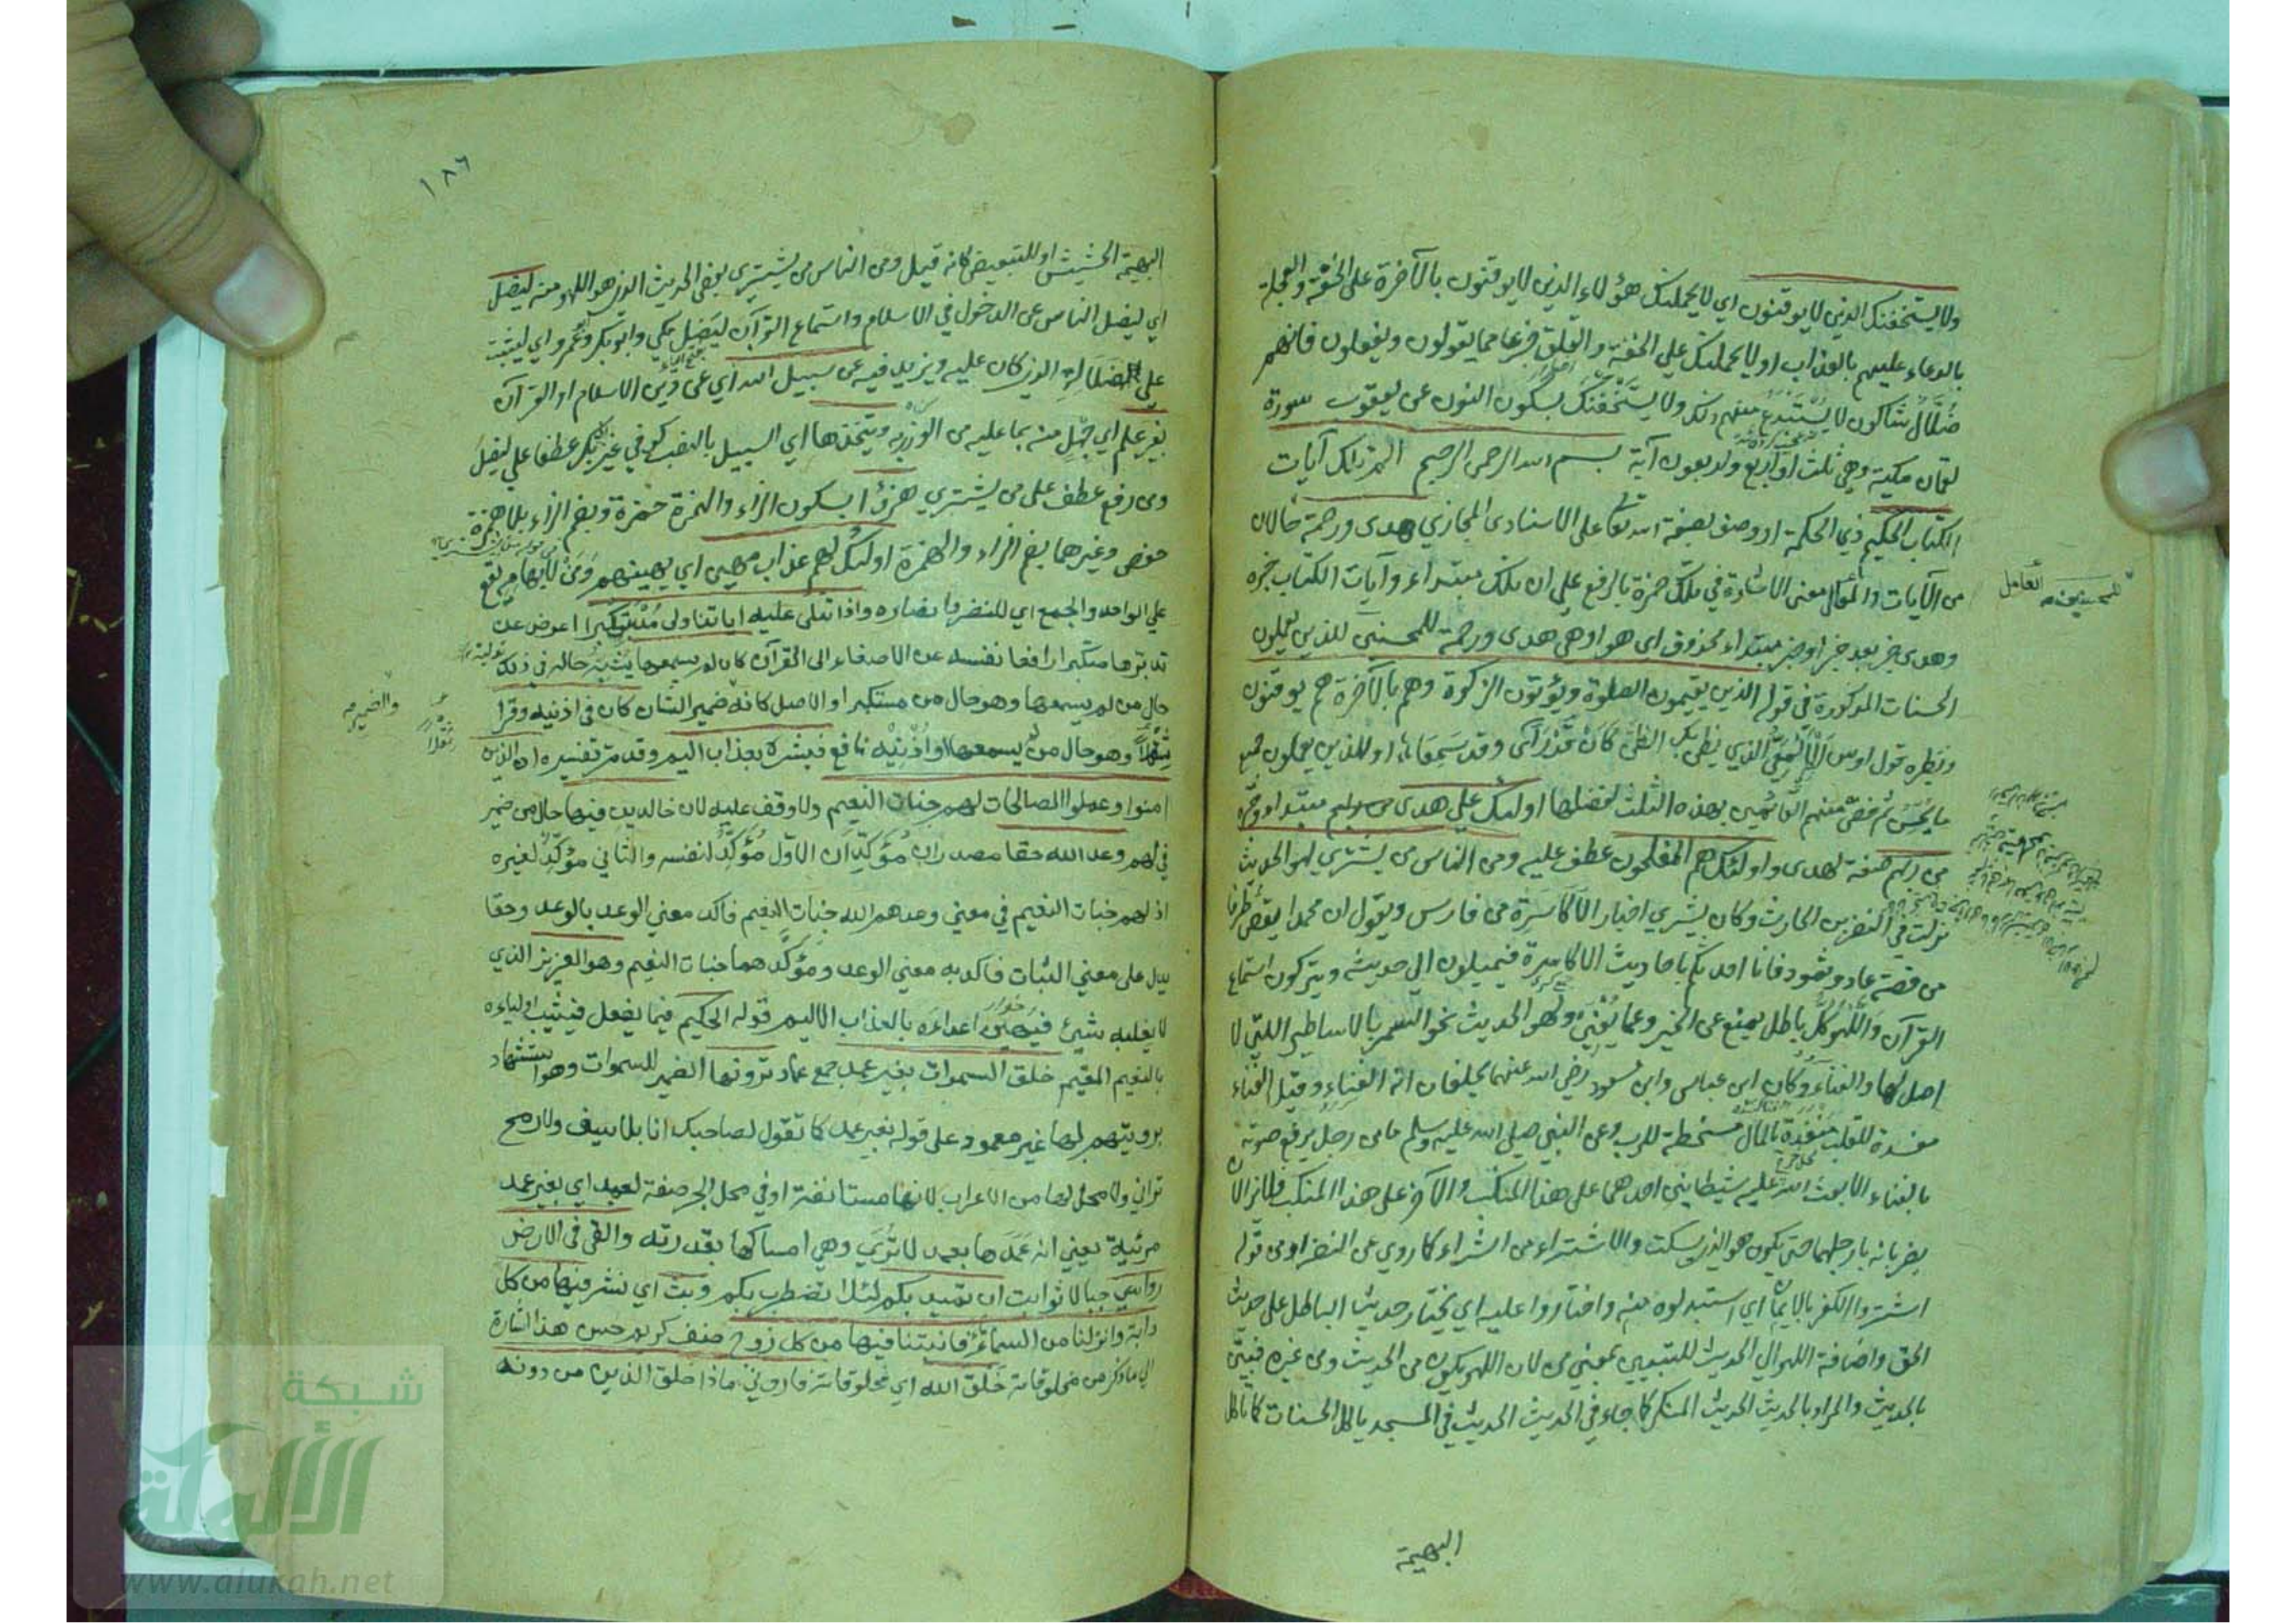 ولا يستخفنك الذين لا يوقنون اي لا يحملنك هؤلاء الذين لا يوقنون بالآخرة على الخفة والعجلة
بالدعاء عليهم بالعذاب او لا يحملنك على الخفة والقلق جزعا مما يقولون ويفعلون فانهم
ضلال شاكون لا يستبدع منهم ذلك ولا يستخفنك بسكون النون عن يعقوب سورة
لقمان مكية وهي ثلث او اربع وثلاثون آية بسم الله الرحمن الرحيم الم تلك آيات
الكتاب الحكيم ذي الحكمة او وصف بصفة الله تعا على الاسناد المجازي هدى ورحمة حالان
من الآيات والعامل معنى الاشارة في تلك حمزة بالرفع على ان تلك مبتداء وآيات الكتاب خبره
وهدى خبر بعد خبر او خبر مبتداء محذوف اي هو او هي هدى ورحمة للمحسنين للذين يعملون
الحسنات المذكورة في قوله الذين يقيمون الصلوة ويؤتون الزكوة وهم بالآخرة هم يوقنون
ونظيره قول اوس الالمعي الذي يظن بك الظن كان قد راى وقد سمعا او للذين يعملون جميع
ما يحسن ثم خص منهم القائمين بهذه الثلث لفضلها اولئك على هدى من ربهم مبتدا وخبره
من ربهم صفة لهدى واولئك هم المفلحون عطف عليه ومن الناس من يشتري لهو الحديث
نزلت في النضر بن الحارث وكان يشتري اخبار الاكاسرة من فارس ويقول ان محمدا يقص طرفا
من قصة عاد وثمود فانا احدثكم باحاديث الاكاسرة فيميلون الى حديثه ويتركون استماع
القرآن واللهو كل باطل يمنع عن الخير وعما يعني ولهو الحديث نحو السمر بالاساطير التي لا
اصل لها والغناء وكان ابن عباس وابن مسعود رضي الله عنهما يحلفان انه الغناء وقيل الغناء
مفسدة للقلب منفدة للمال مسخطة للرب وعن النبي صلى الله عليه وسلم ما من رجل يرفع صوته
بالغناء الا بعث الله عليه شيطانين احدهما على هذا المنكب والآخر على هذا المنكب فلا يزالان
يضربانه بارجلهما حتى يكون هو الذي يسكت والاشتراء من الشراء كما روي عن النضر او من قوله
اشتروا الكفر بالايمان اي استبدلوه منه واختاروا عليه اي يختار حديث الباطل على حديث
الحق واضافة اللهو الى الحديث للتبيين بمعنى من لان اللهو يكون من الحديث ومن غيره فبين
بالحديث والمراد بالحديث الحديث المنكر كما جاء في الحديث الحديث في المسجد ياكل الحسنات كما تاكل
البهيمة
١٨٦
البهيمة الحشيش او للتبعيض كانه قيل ومن الناس من يشتري بعض الحديث الذي هو اللهو منه ليضل
اي ليضل الناس عن الدخول في الاسلام واستماع القرآن ليضل مكي وابو عمرو اي ليثبت
على الضلالة الذي كان عليه ويزيد فيه عن سبيل الله اي عن دين الاسلام او القرآن
بغير علم اي جهل منه بما عليه من الوزر به ويتخذها اي السبيل بالنصب كوفي غير ابي بكر عطفا على ليضل
ومن رفع عطف على من يشتري هزؤا بسكون الزاء والهمزة حمزة وبضم الزاء بلا همزة
حفص وغيرهما بضم الزاء والهمزة اولئك لهم عذاب مهين اي يهينهم ومن لابهامه يقع
على الواحد والجمع اي للنضر وامثاله واذا تتلى عليه آياتنا ولى مستكبرا اعرض عن
تدبرها متكبرا رافعا نفسه عن الاصغاء الى القرآن كان لم يسمعها يشبه حاله في ذلك
حال من لم يسمعها وهو حال من مستكبرا والاصل كانه ضمير الشان كان في اذنيه وقرا
ثقلا وهو حال من لم يسمعها واذنيه نافع فبشره بعذاب اليم وقد مر تفسيره ان الذين
امنوا وعملوا الصالحات لهم جنات النعيم ولا وقف عليه لان خالدين فيها حال من ضمير
في لهم وعد الله حقا مصدران مؤكدان الاول مؤكد لنفسه والثاني مؤكد لغيره
اذ لهم جنات النعيم في معنى وعدهم الله جنات النعيم فاكد معنى الوعد بالوعد وحقا
يدل على معنى الثبات فاكد به معنى الوعد ومؤكدهما جنات النعيم وهو العزيز الذي
لا يغلبه شيئ فيهين اعداءه بالعذاب الاليم قوله الحكيم فيما يفعل فيثيب اولياءه
بالنعيم المقيم خلق السموات بغير عمد جمع عماد ترونها الضمير للسموات وهو استشهاد
برويتهم لها غير معمودة على قوله بغير عمد كما تقول لصاحبك انا بلا سيف ولا رمح
تراني ولا محل لها من الاعراب لانها مستانفة او في محل الجر صفة لعمد اي بغير عمد
مرئية يعني انه عمدها بعمد لا ترى وهي امساكها بقدرته والقى في الارض
رواسي جبالا ثوابت ان تميد بكم لئلا تضطرب بكم وبث اي نشر فيها من كل
دابة وانزلنا من السماء ماء فانبتنا فيها من كل زوج صنف كريم حسن هذا اشارة
الى ما ذكر من مخلوقاته خلق الله اي مخلوقاته فاروني ماذا خلق الذين من دونه
شبكة
الألوكة
www.alukah.net